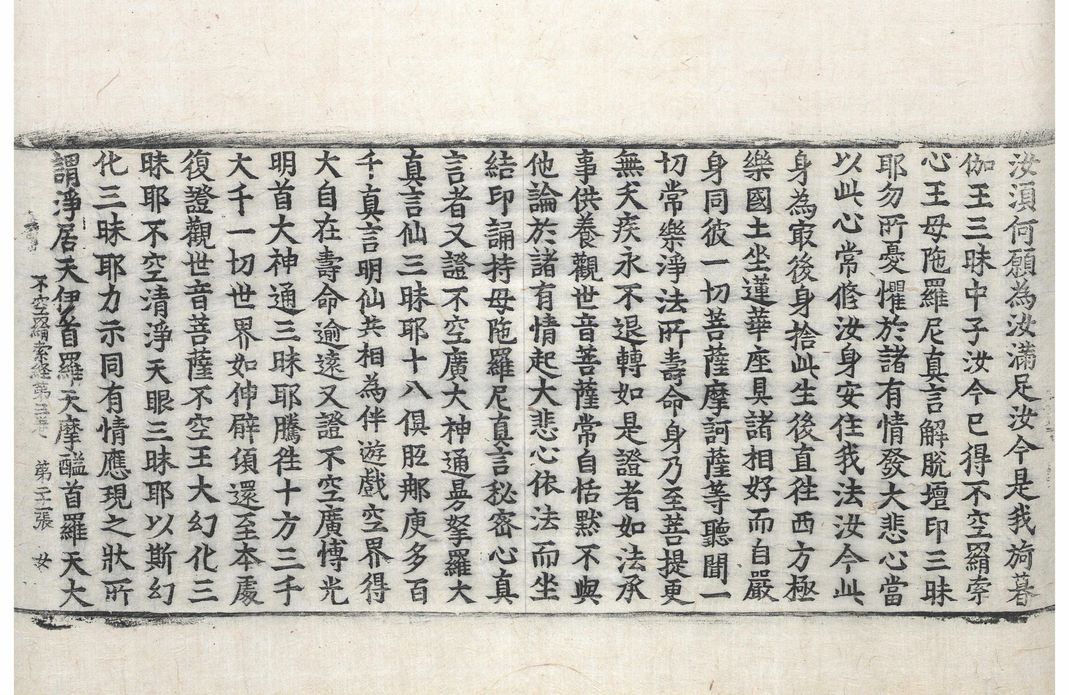 汝湏何願為汝滿足汝今是我旖暮
伽王三昧中子汝今已得不空羂索
心王母陁羅尼真言解脫壇印三昧
耶勿所憂懼於諸有情發大悲心當
以此心常修汝身安住我法汝今此
身為冣後身捨此生後直徃西方極
樂國土坐蓮華座具諸相好而自嚴
身同彼一切菩薩摩訶薩等聽聞一
切常樂淨法所壽命身乃至菩提更
無夭疾永不退轉如是證者如法承
事供養觀世音菩薩常自恬默不與
他論於諸有情起大悲心依法而坐
結印誦持母陁羅尼真言秘密心真
言者又證不空廣大神通曼拏羅大
真言仙三昧耶十八俱胝那庾多百
千真言明仙共相為伴遊戲空界得
大自在壽命逾遠又證不空廣博光
明首大神通三昧耶騰徃十方三千
大千一切世界如伸臂頃還至本處
復證觀世音菩薩不空王大幻化三
昧耶不空清淨天眼三昧耶以斯幻
化三昧耶力示同有情應現之狀所
謂淨居天伊首羅天摩醯首羅天大
不空羂索経第三卷 第二十二張 女